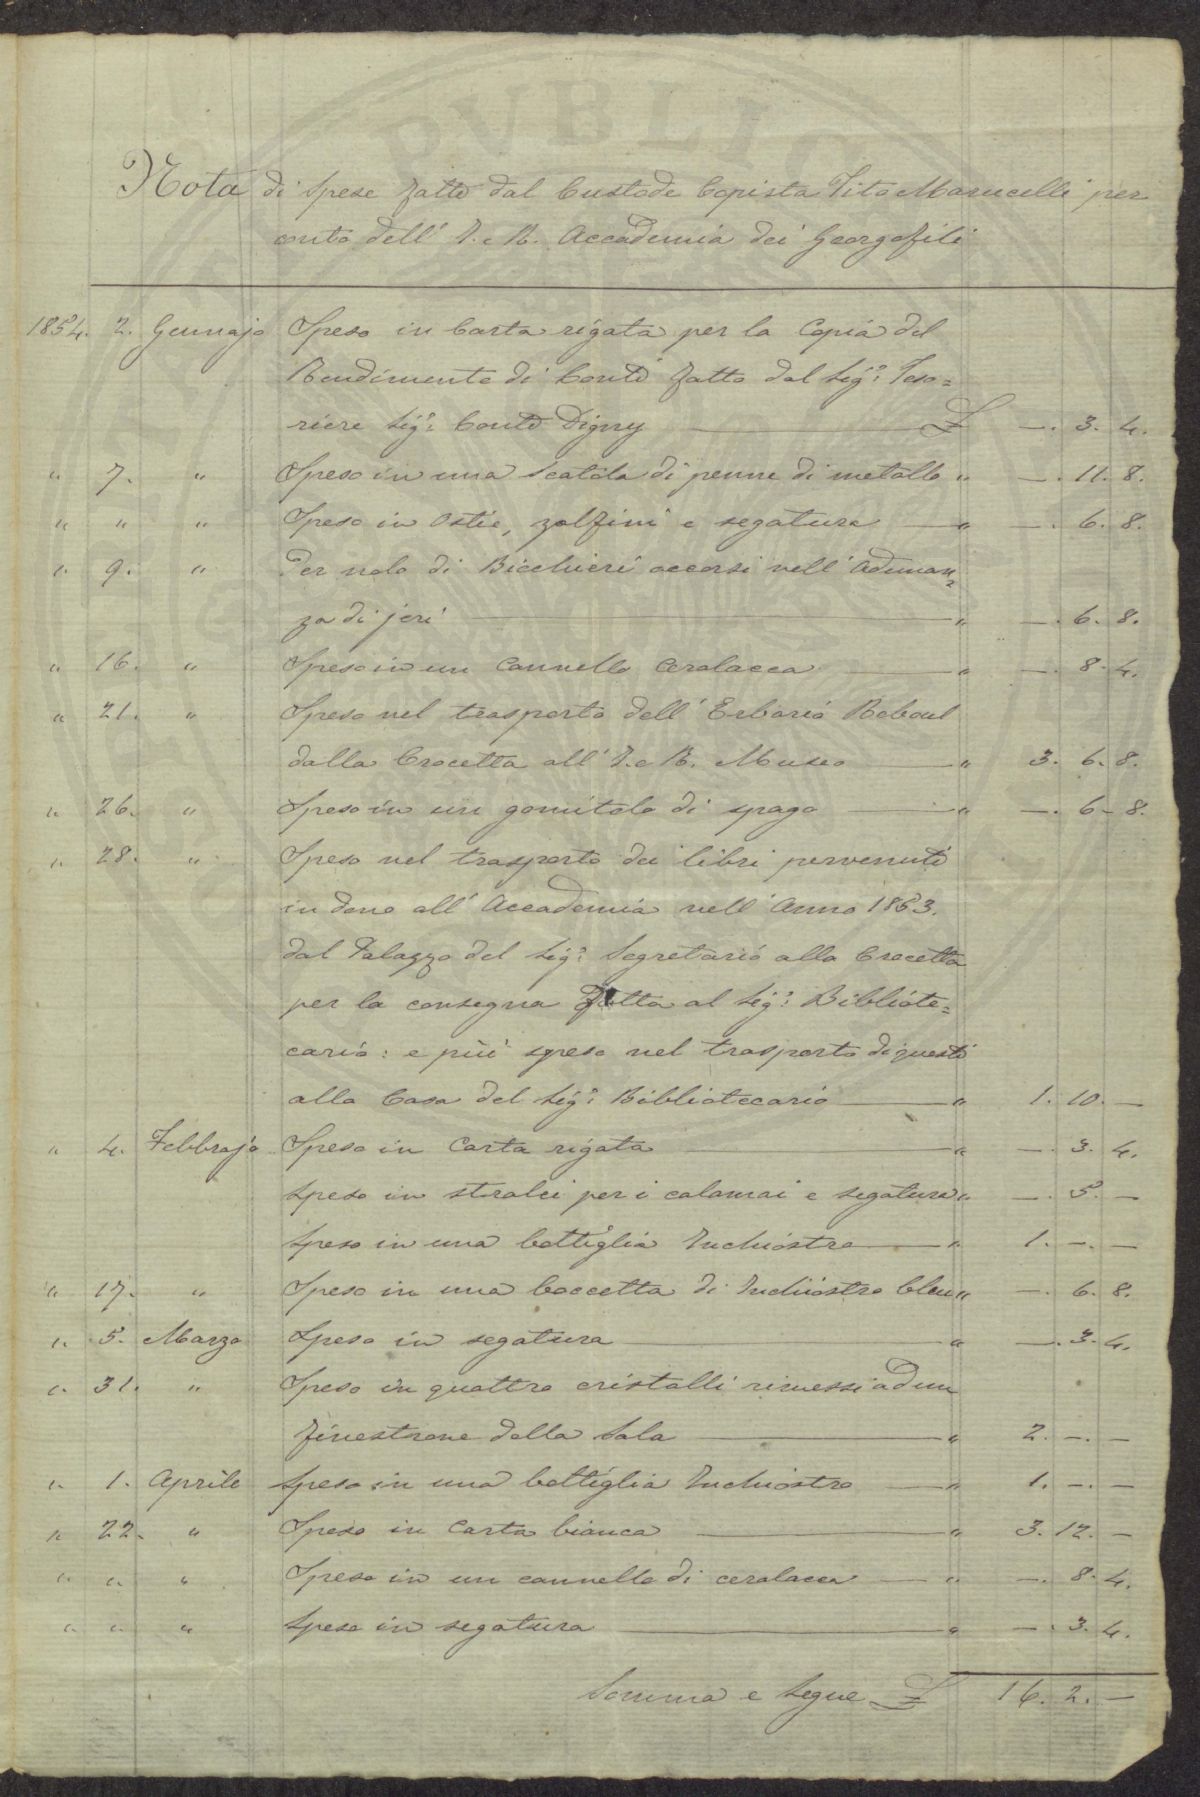 Nota di Spese fatte dal Custode Copista Tito Marucelli per
conto dell' I. e R. Accademia dei Georgofili
1854. 2. Gennajo Speso in Carta rigata per la Copia del
Rendimento di Conti fatto dal Sigr: Teso=
riere Sigr: Conte Digny £ —. 3. 4.
" 7. " Speso in una Scatola di penne di metallo " —. 11. 8.
" " " Speso in Ostie, zolfini e segatura " —. 6. 8.
" 9. " Per nolo di Bicchieri occorsi nell' Adunan=
za di jeri " —. 6. 8.
" 16. " Speso in un Cannello Ceralacca " —. 8. 4.
" 21. " Speso nel trasporto dell' Erbario Reboul
dalla Crocetta all' I. e R. Museo " 3. 6. 8.
" 26. " Speso in un gomitolo di spago " —. 6. 8.
" 28. " Speso nel trasporto dei libri pervenuti
in dono all' Accademia nell' Anno 1853.
dal Palazzo del Sigr: Segretario alla Crocetta
per la consegna fatta al Sigr: Bibliote=
cario: e più speso nel trasporto di questi
alla Casa del Sigr: Bibliotecario " 1. 10. —
" 4. Febbrajo Speso in Carta rigata " —. 3. 4.
Speso in stralci per i calamai e segatura " —. 5. —
Speso in una bottiglia Inchiostro " 1. —. —
" 17. " Speso in una boccetta di Inchiostro bleu " —. 6. 8.
" 5. Marzo Speso in segatura " —. 3. 4.
" 31. " Speso in quattro cristalli rimessi ad un
finestrone della Sala " 2. —. —
" 1. Aprile Speso in una bottiglia Inchiostro " 1. —. —
" 22. " Speso in Carta bianca " 3. 12. —
" " " Speso in un cannello di ceralacca " —. 8. 4.
" " " Speso in segatura " —. 3. 4.
Somma e Segue £ 16. 2. —